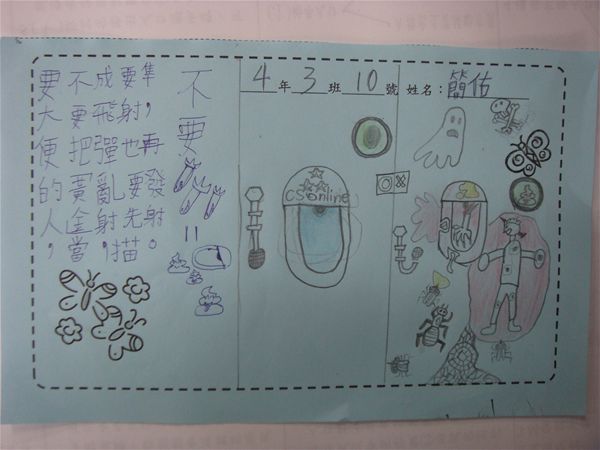 4年3班10號 姓名：簡佑
不要
要大便的人，
不要把黃金當
成飛彈亂射，
要射也要先描
準，再發射。
CSonline